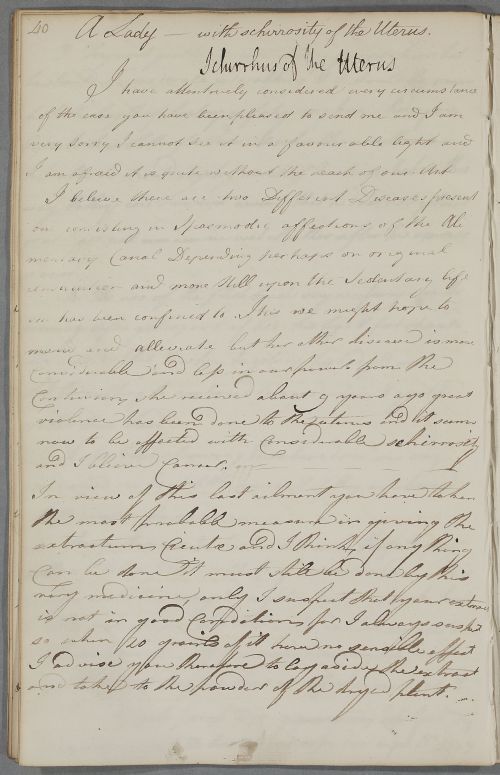 40
A Lady — with schirrosity of the Uterus.
Schirrhus of the Uterus
I have attentively considered every circumstance
of the case you have been pleased to send me and I am
very sorry I cannot see it in a favourable light and
I am afraid it is quite without the reach of our Art
I believe there are two Different Diseases present
on consisting in Spasmodic affections of the Ali
mentary Canal Depending perhaps on original
and more still upon the Sedentary life
has been confined to this we might hope to
and alleviate but her other disease is more
Considerable and less in our power from the
Contusion she received about 9 years ago great
violence has been done to the uterus and it seems
now to be affected with Considerable schirrosity
and I believe Cancer.
In view of this last ailment you have taken
the most probable measure in giving the
extractum Cicutæ and I think if any thing
Can be done it must still be done by this
very medicine, only I suspect that your extract
is not in good Conditions for I always suspect
so when 20 grains of it have no sensible effect
I advise you therefore to lay aside the extract
and take to the powder of the dryed plant.